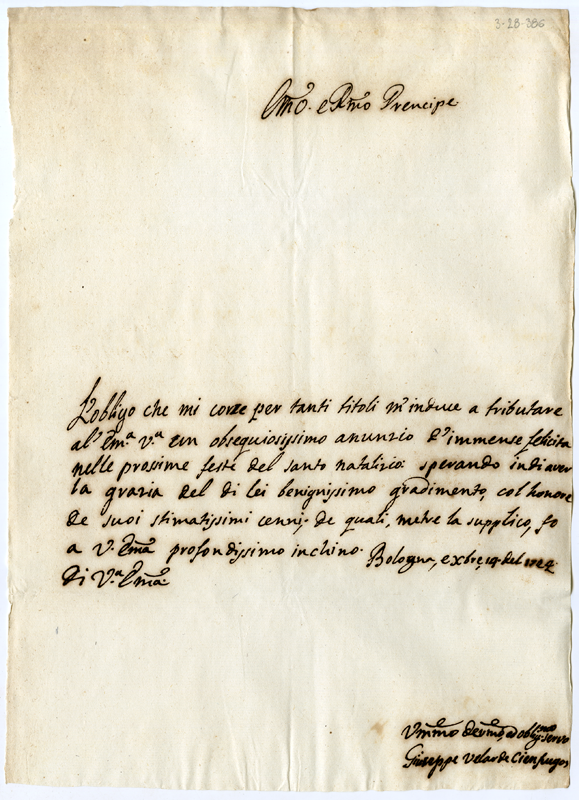 3-28-386
Em̃o. e Rm̃o Prencipe
L'obligo che mi corre per tanti titoli m'induce a tributare
al' Em̃.a V.a un obsequiosissimo anunzio d'immense felicita
nelle prossime feste del santo natalizio: sperando indi aver
la grazia del di lei benignissimo gradimento, col honore
de suoi stimatissimi cenni, de quali, mentre la supplico, fo
a V. Em̃a profondissimo inchino. Bologna, e xbre, 19. del 1724
Di V.a Em̃a
Um̃mo Devm̃o ed oblig.mo servo
Giuseppe Velarde Cienfuegos